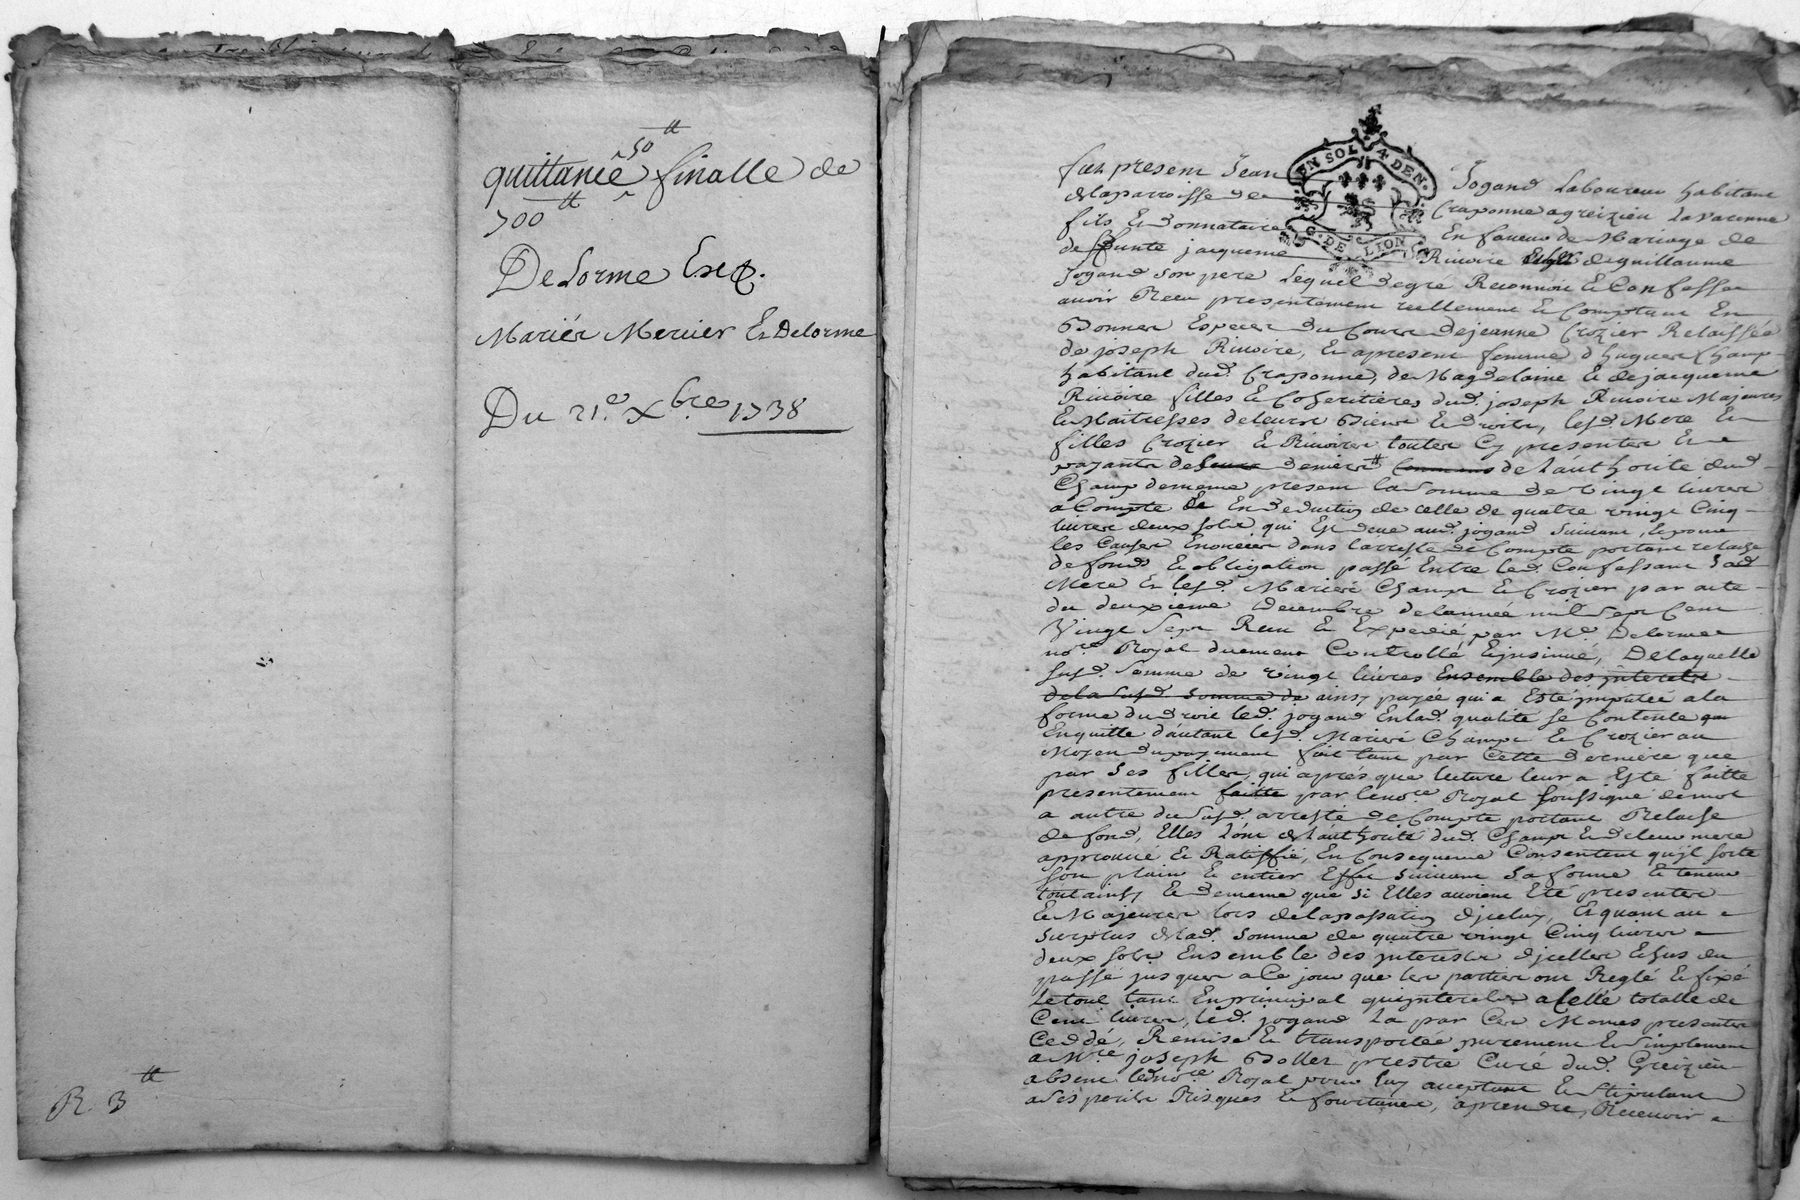 50 ₶
quittance finalle de
700 ₶
Delorme Exp.
Mariés Mercier Et Delorme
Du 21.e Xbre 1738
R. 3 ₶
EN SOL 4 DEN.
G. DE LION
fut present Jean Jogand Laboureur habitant
de la parroisse de Craponne a greizieu Lavarenne
fils Et Donnataire En faveur de Mariage de
de funte jacqueme Rivoire de guillaume
Jogand son pere Lequel degré Reconnoit Et Confesse
avoir Receu presentement reellement Et Comptant En
Bonnes Especes du Cours de jeanne Crozier Relaissée
de joseph Rivoire, Et apresent femme d'hugues Champ
habitant dud. Craponne, de Magdelaine Et de jacqueme
Rivoire filles Et Coheritieres dud. joseph Rivoire Majeures
Et Maitresses de leurs Biens Et droits, lesd. Mere Et
filles Crozier Et Rivoire toutes Cy presentes Et
payants de leurs deniers communs de l'authorité dud.
Champ de meme present la Somme de vingt livres
a Compte Et En deduction de celle de quatre vingt Cinq
livres deux sols qui Est deue aud. jogand suivant, Et pour
les Causes Enoncées dans l'arresté de Compte portant relache
de fonds Et obligation passé Entre led. Confessant Sad.
Mere Et lesd. Mariés Champ Et Crozier par acte
du deuxieme Decembre de l'année mil Sept Cent
Vingt Sept Receu Et Expedié par Me. Delorme
nore. Royal duement Controllé Et insinué, De laquelle
susd. Somme de vingt livres Ensemble des interets
de la susd. Somme de ainsy payée qui a Esté imputée a la
forme du droit led. jogand En lad. qualité se Contente
En quitte d'autant lesd. Mariés Champ Et Crozier au
Moyen du payement fait tant par Cette derniere que
par Ses filles, qui aprés que lecture leur a Esté faitte
presentement faitte par le nore. Royal soussigné de mot
a autre du susd. arresté de Compte portant Relache
de fond, Elles l'ont de l'authorité dud. Champ Et de leur mere
approuvé Et Ratiffié, En Consequence Consentent qu'il sorte
son plain Et entier Effet suivant Sa forme Et teneur
tout ainsy Et de meme que Si Elles avoient Eté presentes
Et Majeures lors de la passation d'iceluy, Et quant au
Surplus de lad. Somme de quatre vingt Cinq livres
deux sols Ensemble des interets d'icelles Echus du
passé jusques a Ce jour que les parties ont Reglé Et fixé
Le tout tant En principal qu'interets a Celle totalle de
Cent livres, led. jogand La par Ces Memes presentes
Ceddé, Remise Et transportée purement Et simplement
a Mre. joseph Prestre Curé dud. Greizieu
absent led. nore. Royal pour luy acceptant Et Stipulant
a Ses perils Risques Et fourtunes, aprendre, Recevoir